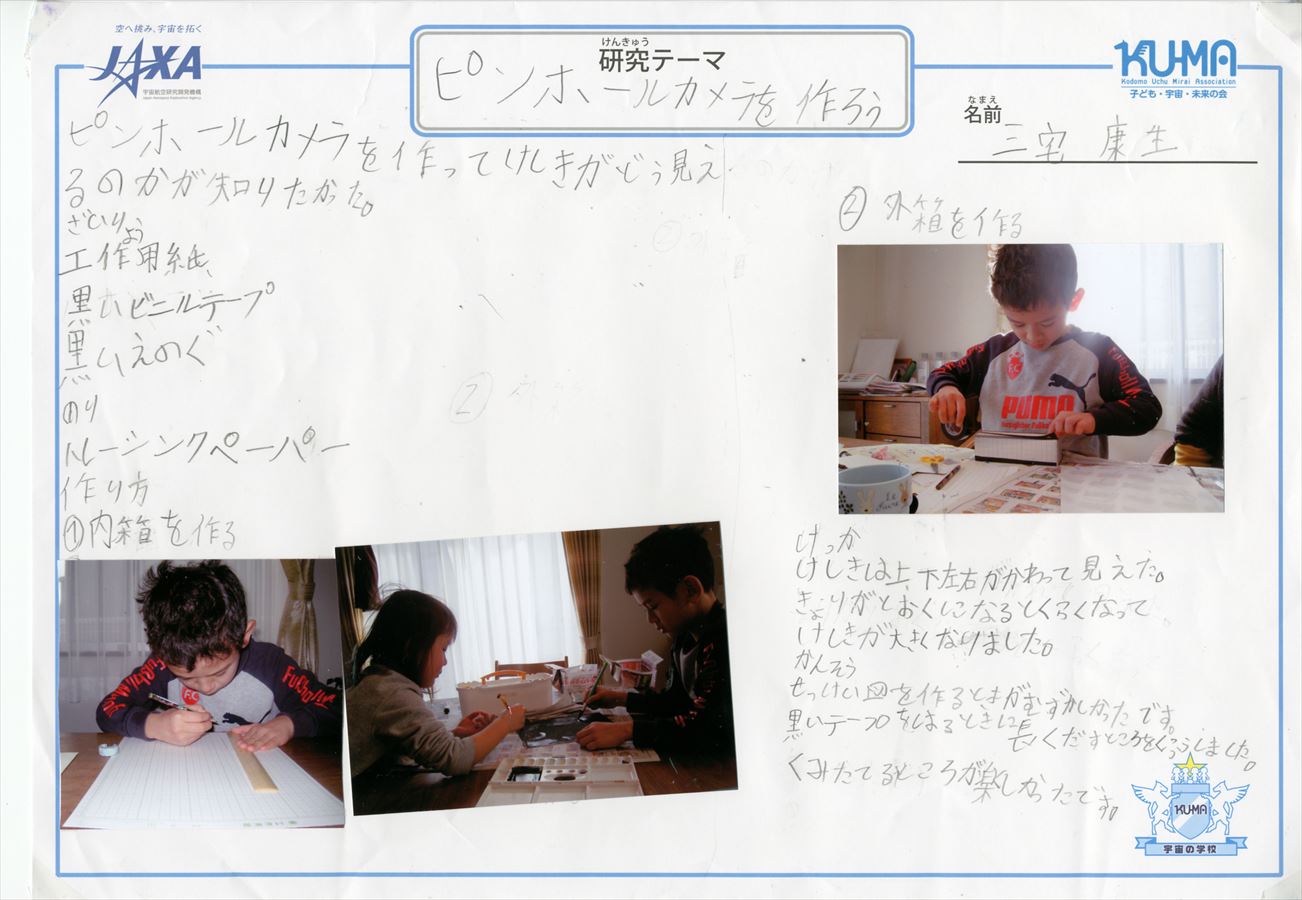 空へ挑み、宇宙を拓く
JAXA
宇宙航空研究開発機構
Japan Aerospace Exploration Agency
けんきゅう
研究テーマ
ピンホールカメラを作ろう
KUMA
Kodomo Uchu Mirai Association
子ども・宇宙・未来の会
なまえ
名前
三宅 康生
ピンホールカメラを作ってけしきがどう見え
るのかが知りたかった。
ざいりょう
工作用紙、
黒いビニルテープ
黒いえのぐ
のり
トレーシングペーパー
作り方
①内箱を作る
②外箱を作る
F.C
PUMA
けっか
けしきは上、下左右がかわって見えた。
きょりがとおくになるとくらくなって
けしきが大きくなりました。
かんそう
せっけい図を作るときがむずかしかったです。
黒いテープをはるときに長くだすところをくふうしました。
くみたてるところが楽しかったです。
KUMA
宇宙の学校